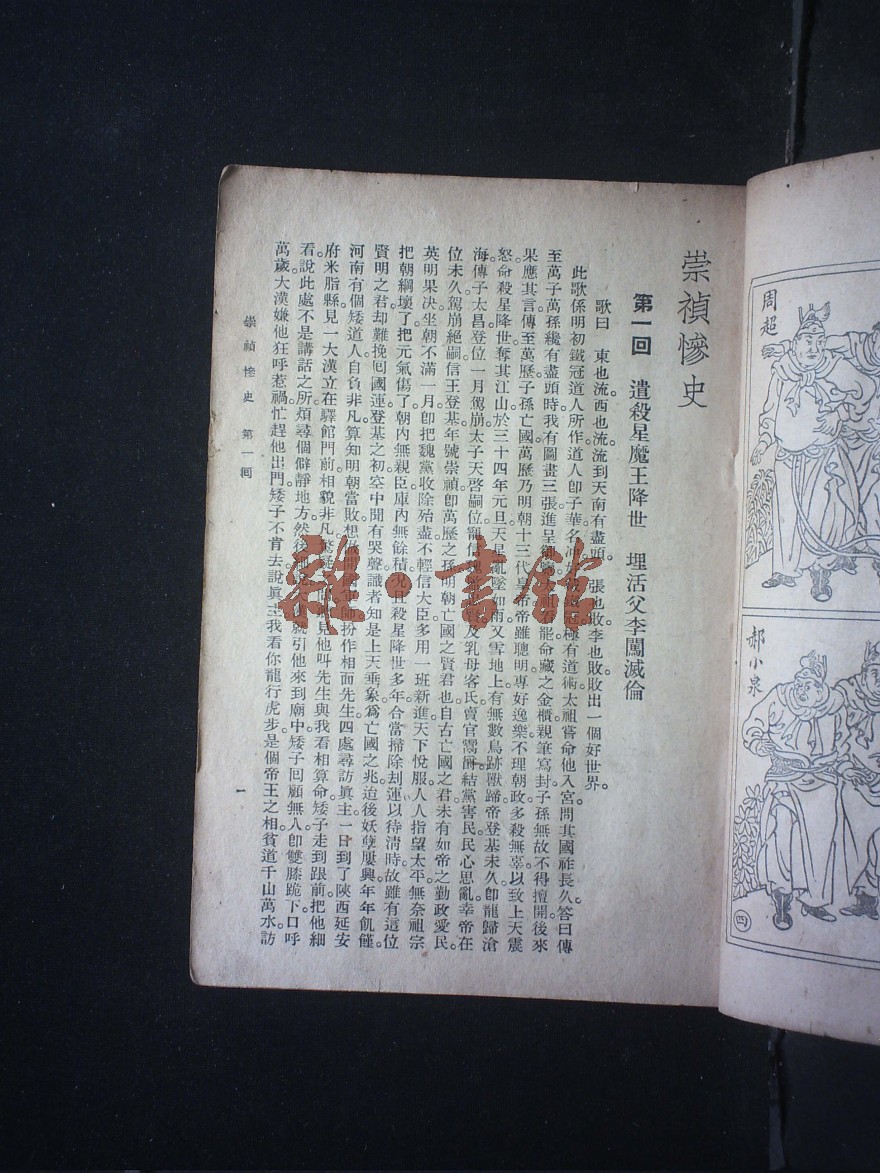 崇禎慘史
第一回 遣殺星魔王降世 埋活父李闖滅倫
歌曰 東也流。西也流。流到天南有盡頭。 張也敗。李也敗。敗出一個好世界。
此歌係明初鐵冠道人所作。道人卽子華名 極有道術。太祖嘗命他入宮。問其國祚長久。答曰傳
至萬子萬孫纔有盡頭時。我有圖畫三張。進呈 罷。命藏之金櫃。親筆寫封。子孫無故不得擅開。後來
果應其言。傳至萬歷子孫亡國。萬歷乃明朝十三代皇帝。帝雖聰明。專好逸樂。不理朝政。多殺無辜。以致上天震
怒。命殺星降世。奪其江山。於三十四年元旦。天星亂墜如雨。又雪地上有無數鳥跡獸蹄。帝登基未久。卽龍歸滄
海。傳子太昌登位。一月駕崩。太子天啓嗣位。寵信 及乳母客氏。賣官鬻爵。結黨害民。民心思亂。幸帝在
位未久。駕崩絕嗣。信王登基。年號崇禎。卽萬歷之孫。明朝亡國之賢君也。自古亡國之君。未有如帝之勤政愛民。
英明果决。坐朝不滿一月。卽把魏黨收除殆盡。不輕信大臣。多用一班新進。天下悅服。人人指望太平。無奈祖宗
把朝綱壞了。把元氣傷了。朝內無親臣。庫內無餘積。况且殺星降世多年。合當掃除刦運。以待淸時。故雖有這位
賢明之君。却難挽囘國運。登基之初。空中聞有哭聲。識者知是上天垂象。爲亡國之兆。迨後妖孽屢興。年年飢饉。
河南有個矮道人。自負非凡。算知明朝當敗。想做開國軍師。扮作相面先生。四處尋訪眞主。一日到了陝西延安
府米脂縣。見一大漢立在驛館門前。相貌非凡。驚疑 見他叫先生與我看相算命。矮子走到跟前。把他細
看。說此處不是講話之所。煩尋個僻靜地方。然後 就引他來到廟中。矮子回顧無人。卽雙膝跪下。口呼
萬歲。大漢嫌他狂呼惹禍。忙趕他出門。矮子不肯去。說眞主。我看你龍行虎步。是個帝王之相。貧道千山萬水訪
崇禎慘史 第一囘
一
周超
郝小泉
四
雜·書館